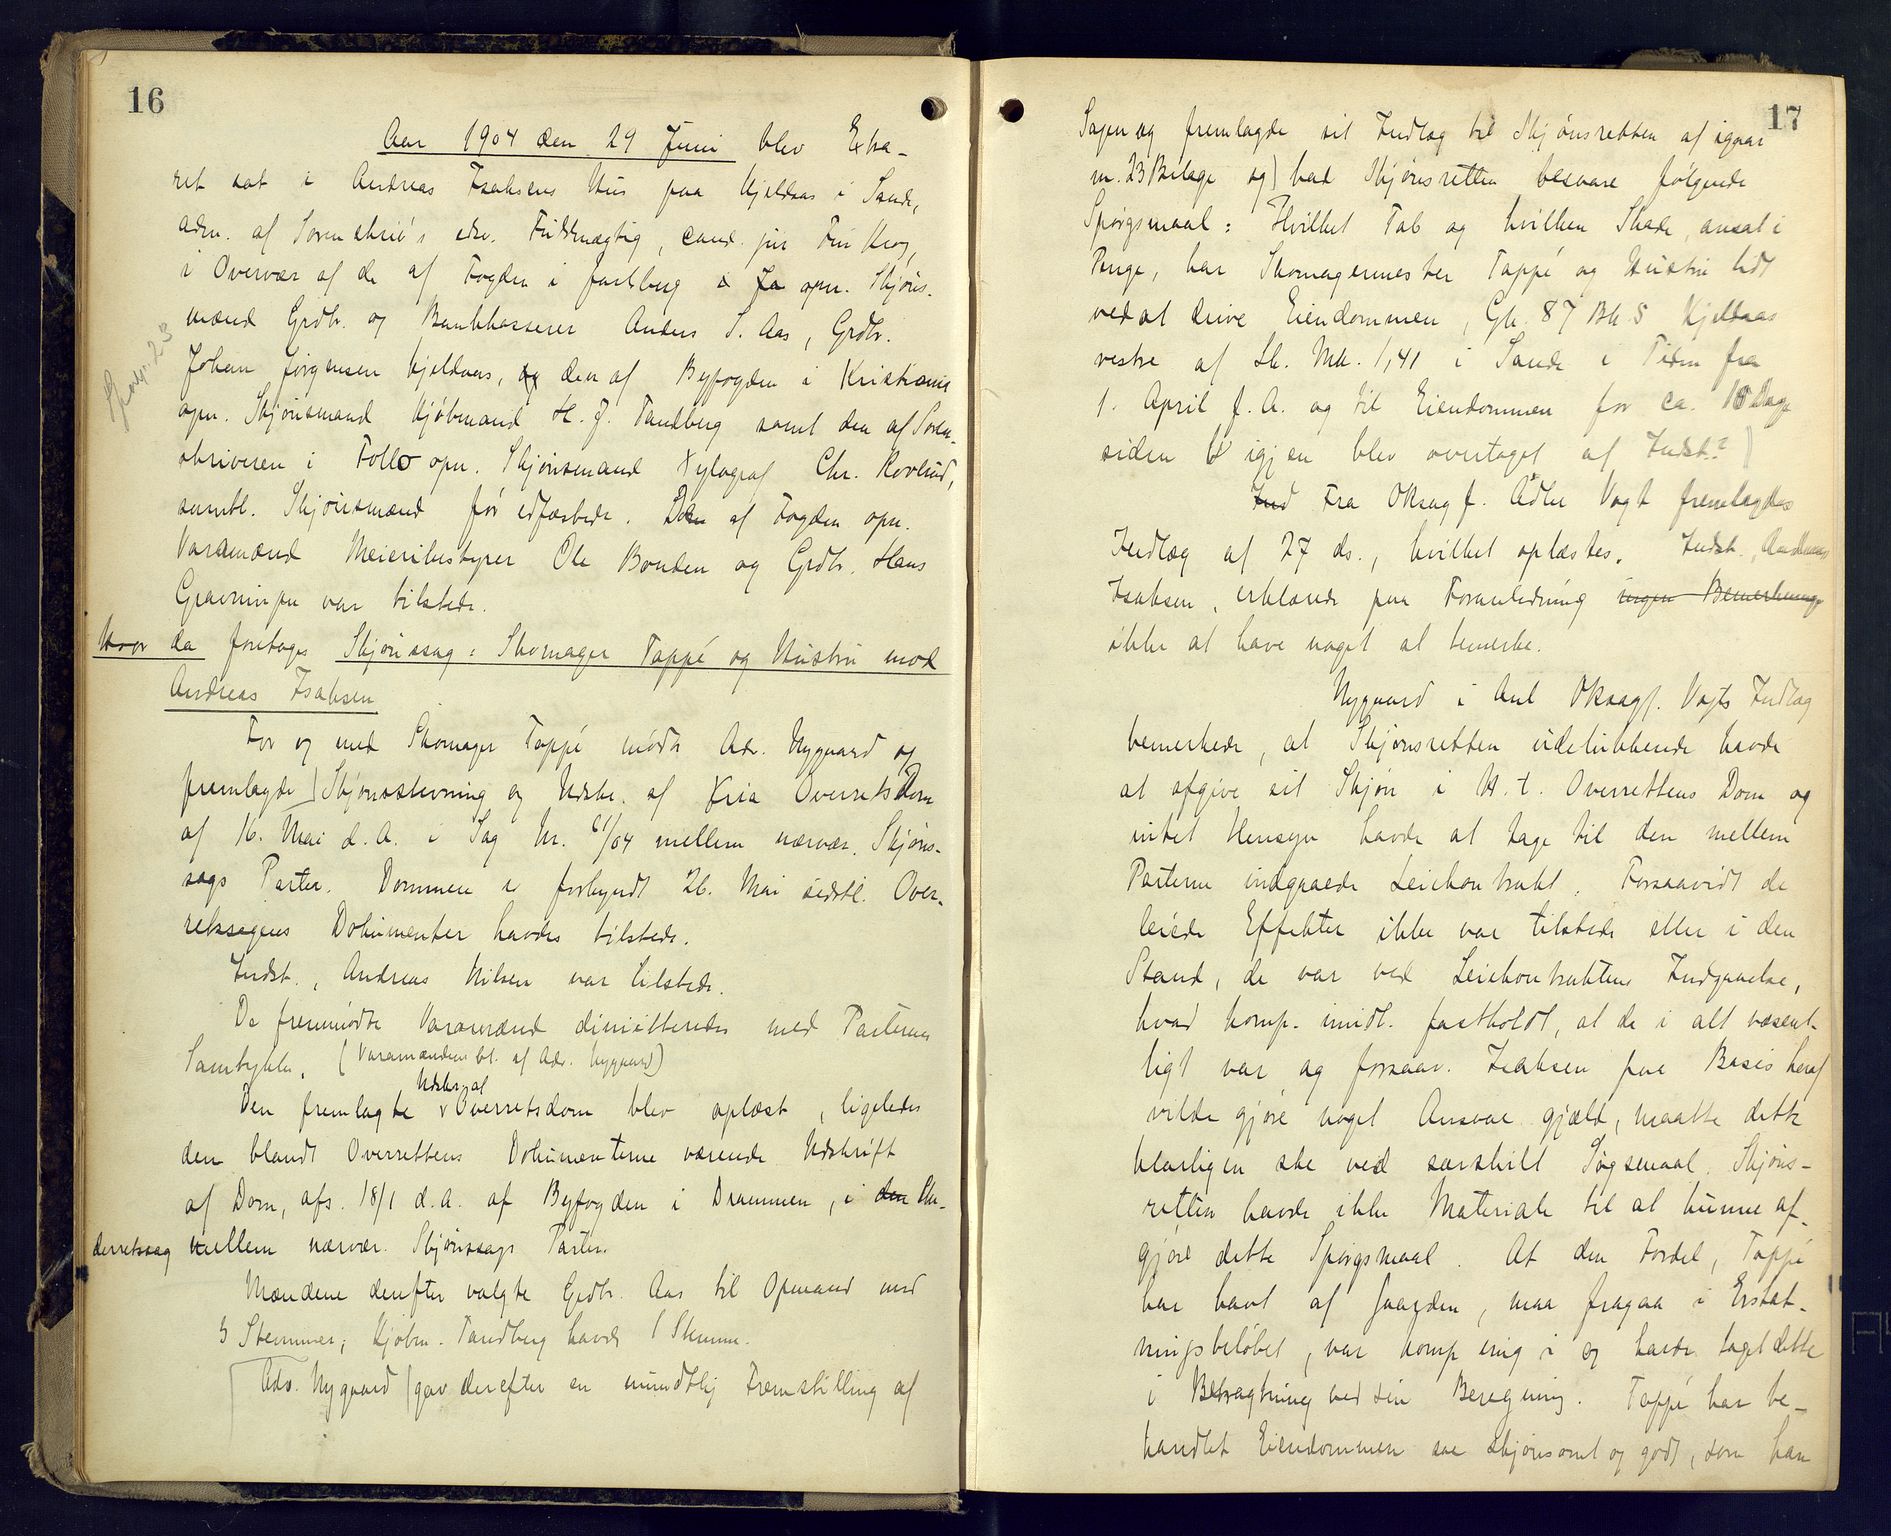 16
Aar 1904 den 29 Juni blev Extra-
ret sat i Andreas Isaksens Hus paa Kjeldaas i Sande,
adm. af Sorenskriv's edsv. Fuldmægtig, cand. jur Krog,
i Overvær af de af Fogden i Jarlsberg opn. Skjøns-
mænd Grdbr. og Bankkasserer Anders S. Aas, Grdbr.
Johan Jørgensen Kjeldaas, og den af Byfogden i Kristiania
opn. Skjønsmand Kjøbmand H. J. Tandberg samt den af Soren-
skriveren i Follo opn. Skjønsmand Xylograf Chr. Rovlund,
samtl. Skjønsmænd før edfæstede. De af Fogden opn.
Varamænd Meieribestyrer Ole Bonden og Grdbr. Hans
Gravningen var tilstede.
Hvor da foretoges Skjønssag: Skomager Tappé og Hustru mod
Andreas Isaksen
For og med Skomager Tappé mødte Adv. Nygaard og
fremlagde Skjønsstevning og Udskr. af Kria Overrets Dom
af 16. Mai d. A. i Sag Nr. 61/04 mellem nærvær. Skjøns-
sags Parter. Dommen er forkyndt 26. Mai sidstl. Over-
retssagens Dokumenter havdes tilstede.
Indst., Andreas Nilsen var tilstede.
De fremmødte Varamænd dimitteredes med Parternes
Samtykke. (Varamændene bt. af Adv. Nygaard)
Udskr. af
Den fremlagte Overretsdom blev oplæst, ligeledes
den blandt Overrettens Dokumenterne værende Udskrift
af Dom, afs. 18/1 d. A. af Byfogden i Drammen, i den Un-
derretssag mellem nærvær. Skjønssags Parter.
Mændene derefter valgte Grdbr. Aas til Opmand med
3 Stemmer; Kjøbm. Tandberg havde 1 Stemme.
Adv. Nygaard gav derefter en mundtlig Fremstilling af
17
Sagen og fremlagde sit Indlæg til Skjønsretten af igaar
m. 23 Bilage og bad Skjønsretten besvare følgende
Spørgsmaal: Hvilket Tab og hvilken Skade, ansat i
Penge, har Skomagermester Tappé og Hustru lidt
ved at drive Eiendommen, Gn. 87 Bn. 5 Kjeldaas
vestre af Sk. Mk. 1,41 i Sande i Tiden fra
1. April f. A. og til Eiendommen for ca. 10 Dage
siden igjen blev overtaget af Indst.?
Ind Fra Oksagf. Adler Vogt fremlagdes
Indlæg af 27 ds., hvilket oplæstes. Indst., Andreas
Isaksen, erklærede paa Foranledning ingen Bemerkninger
ikke at have noget at bemerke.
Nygaard i Anl Oksagf. Vogts Indlæg
bemerkede, at Skjønsretten udelukkende havde
at afgive sit Skjøn i H. t. Overrettens Dom og
intet Hensyn havde at tage til den mellem
Parterne indgaaede Leiekontrakt. Forsaavidt de
leiede Effekter ikke var tilstede eller i den
Stand, de var ved Leiekontraktens Indgaaelse,
hvad komp. imidl. fastholdt, at de i alt væsent-
ligt var og forsaav. Isaksen paa Basis heraf
vilde gjøre noget Ansvar gjæld, maatte dette
klarligen ske ved særskilt Søgsmaal. Skjøns-
retten havde ikke Materiale til at kunne af-
gjøre dette Spørgsmaal. At den Fordel, Tappé
har havt af Gaarden, maa fragaa i Erstat-
ningsbeløbet, var komp enig i og havde taget dette
i Betragtning ved sin Beregning. Tappé har be-
handlet Eiendommen saa skjønsomt og godt, som han